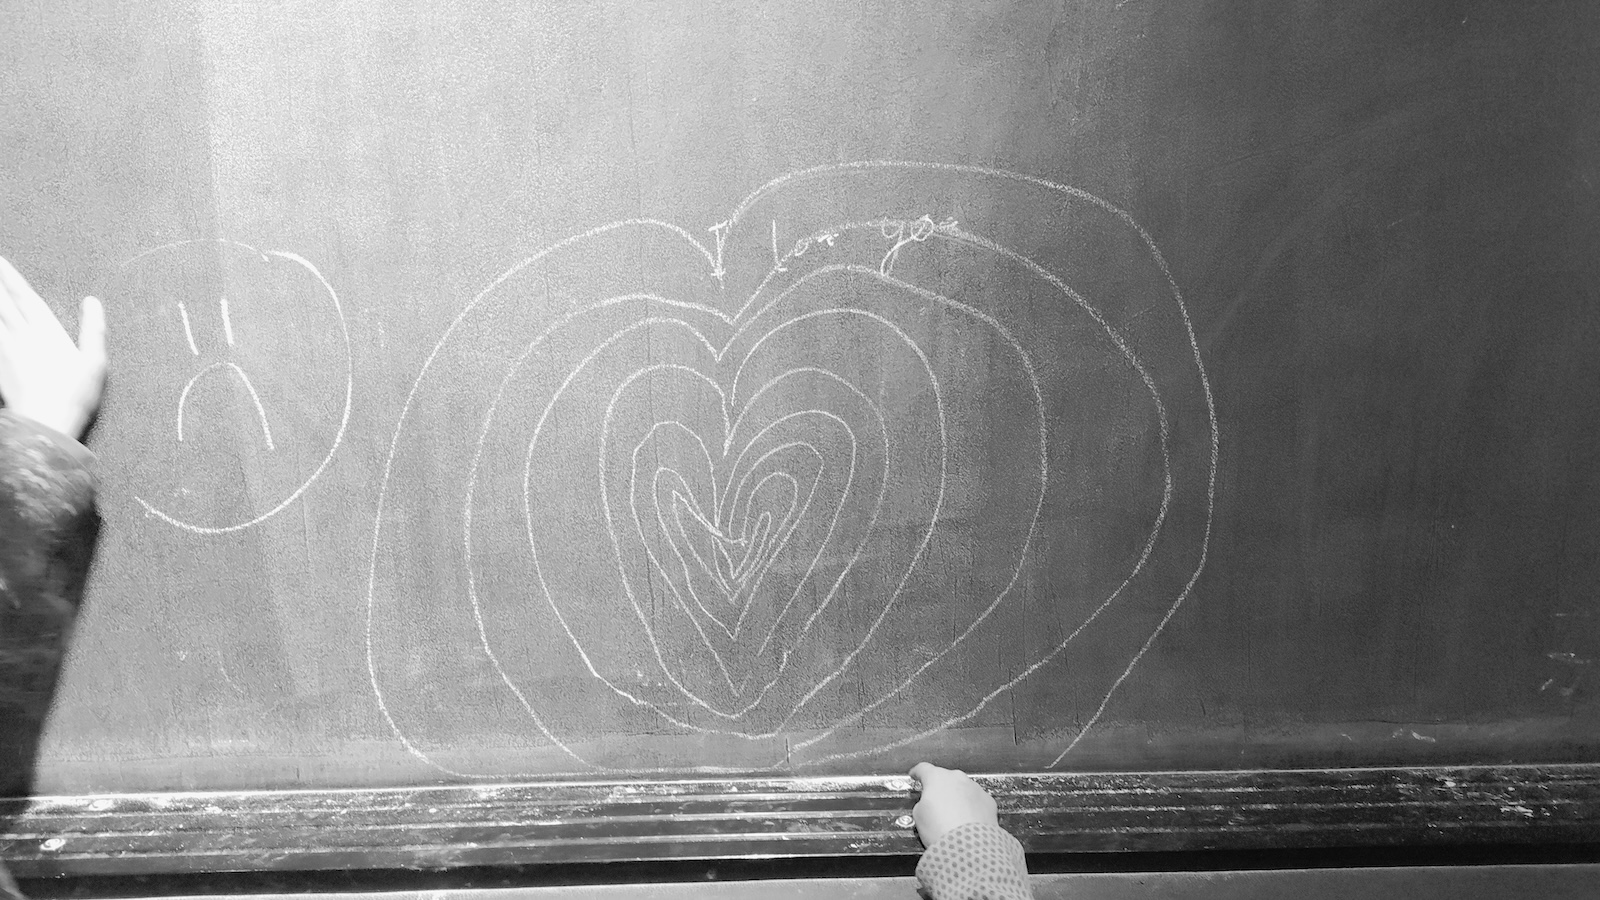 I Lov you